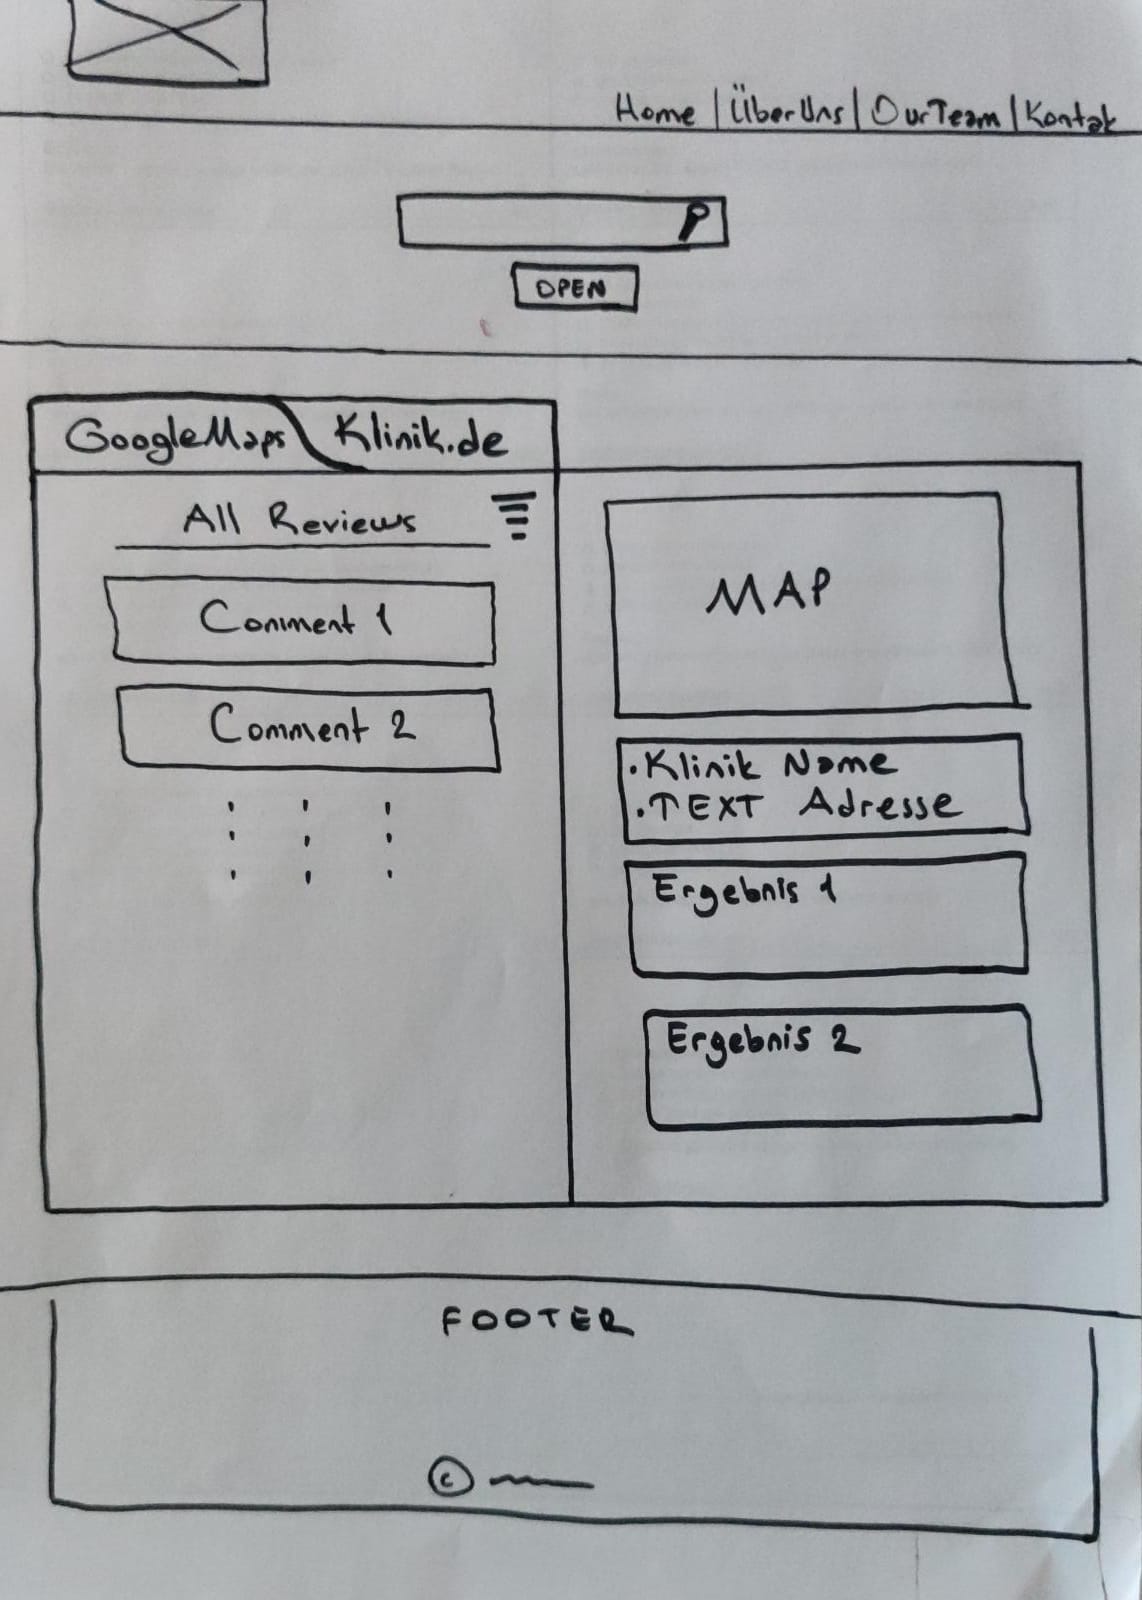 Home | Über Uns | OurTeam | Kontak
OPEN
GoogleMaps Klinik.de
All Reviews
Comment 1
Comment 2
MAP
· Klinik Name
· TEXT Adresse
Ergebnis 1
Ergebnis 2
FOOTER
©